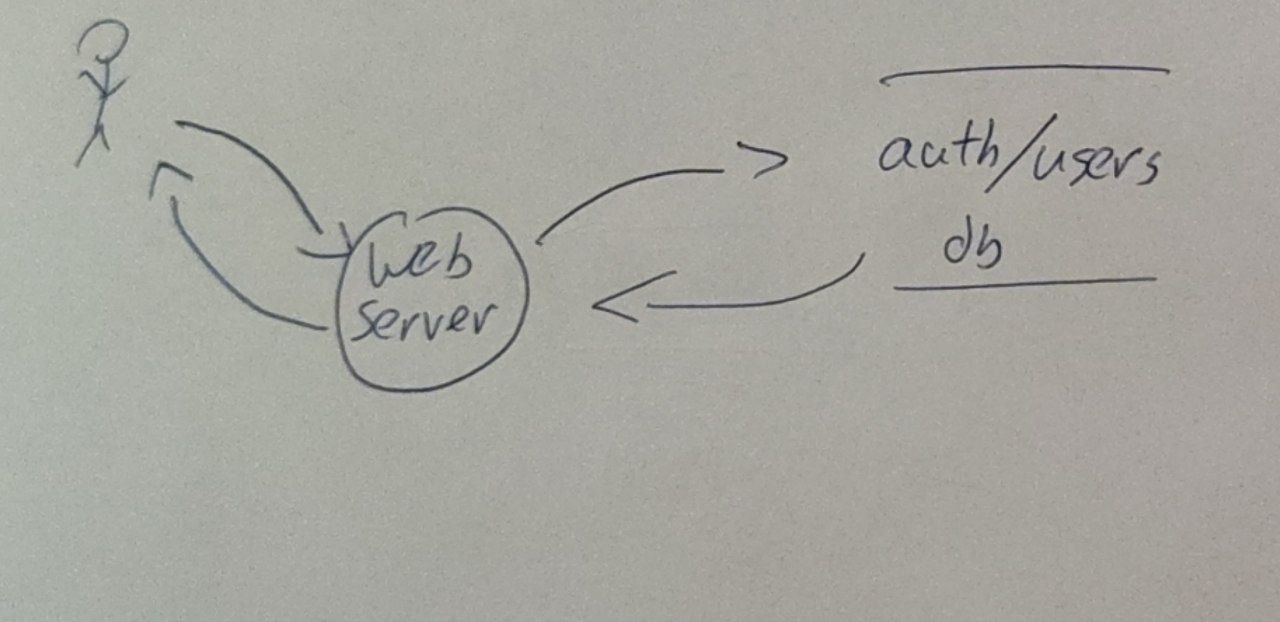 web
server
auth/users
db